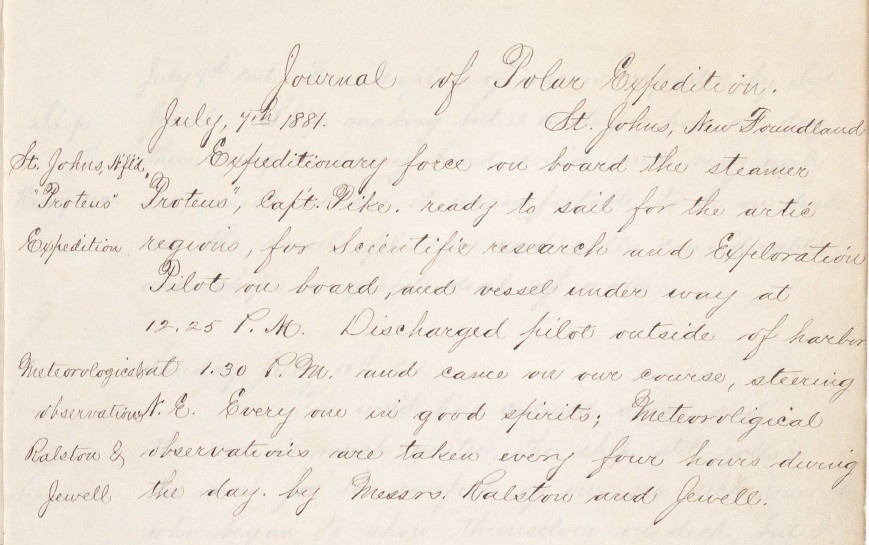 Journal of Polar Expedition.
July, 7th 1881. St. Johns, New Foundland
St. Johns, Nfld. Expeditionary force on board the steamer
"Proteus" "Proteus", Capt. Pike. ready to sail for the artic
Expedition regions, for Scientific research and Exploration
Pilot on board, and vessel under way at
12.25 P.M. Discharged pilot outside of harbor
Meteorological at 1.30 P.M. and came on our course, steering
observations N.E. Every one in good spirits; Meteoroligical
Ralston & observations are taken every four hours during
Jewell the day. by Messrs. Ralston and Jewell.